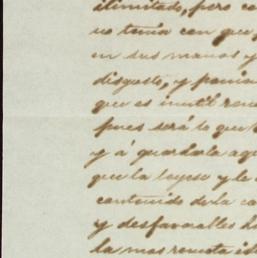 ilimitado, pero co
no tenia con que p
en sus manos y
disgusto, y ponia
que es inutil reco
pues será lo que
y á guardarla aqu
que la leyese y le
contenido de la ca
y desfavorables ha
la mas remota id